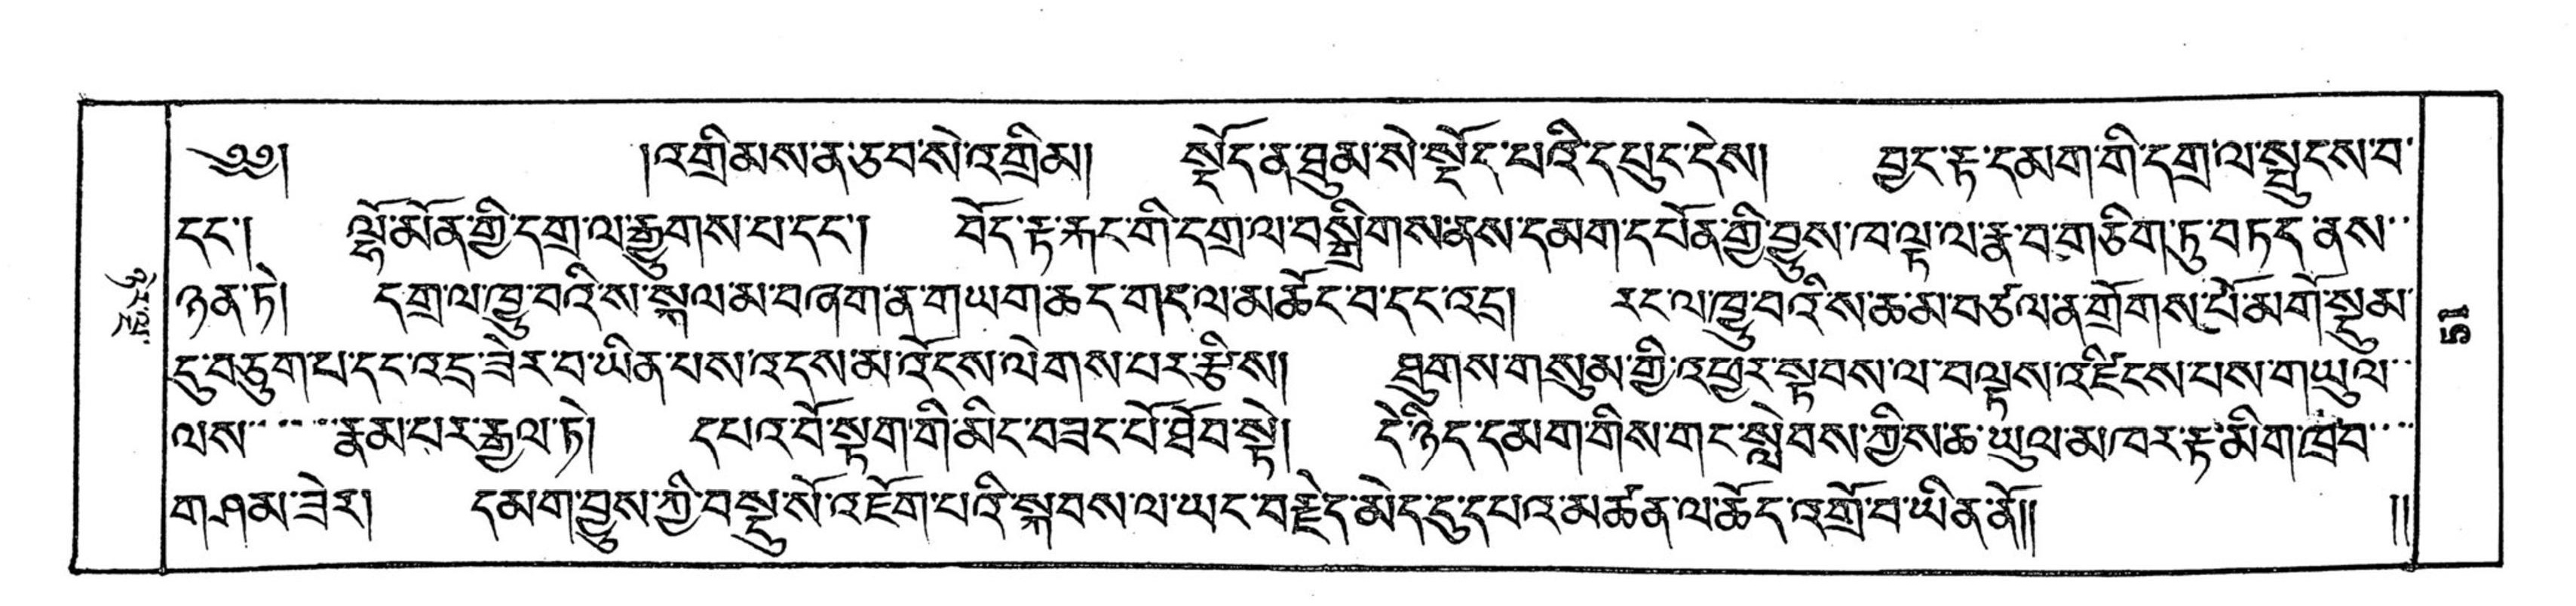 ༄༅། །འགྲིམས་ན་ཅབ་སེ་འགྲིམ། སྡོད་ན་ཐུམ་སེ་སྡོད་པའི་དཔུང་དེས། བྱང་རྟ་དམག་གི་དགྲ་ལ་སྲུངས་བ་
དང་། ལྷོ་མོན་གྱི་དགྲ་ལ་རྒྱུགས་པ་དང་། བོད་རྟ་རྐང་གི་དགྲ་ལ་བསྒྲིགས་ནས་དམག་དཔོན་གྱི་བྱུས་ཁ་ལྟ་ལ་རྣ་བ་གཅིག་ཏུ་བཏད་ནས་
ཉན་ཏེ། དགྲ་ལ་ཁྱུ་བའི་ས་སྐལ་མ་བཞག་ན་གཡག་ཆད་གད་ལ་མཆོང་བ་དང་འདྲ། རང་ལ་ཁྱུ་བའི་ས་ཆ་མ་བཙལ་ན་གྲོགས་པོ་མགོ་སྡུམ་
དུ་བཅུག་པ་དང་འདྲ་ཟེར་བ་ཡིན་པས་འདས་མ་འོངས་ལེགས་པར་རྩིས། ཐུགས་གསུམ་གྱི་འཕྱར་སྟབས་ལ་བལྟས་འཛིངས་པས་གཡུལ་
ལས་རྣམ་པར་རྒྱལ་ཏེ། དཔའ་བོ་སྟག་གི་མིང་བཟང་པོ་ཐོབ་སྟེ། དེ་ཉིད་དམག་གིས་གང་སླེབས་ཀྱི་ས་ཆ་ཡུལ་མཁར་རྟ་མིག་ཁྲབ་
གཤམ་ཟེར། དམག་བྱུས་ཀྱི་བསྡུ་སོ་འཇོག་པའི་སྐབས་ལ་ཡང་བརྗེད་མེད་དུ་དཔའ་མཚན་ལ་ཆོད་འགྲོ་བ་ཡིན་ནོ།། །།
151